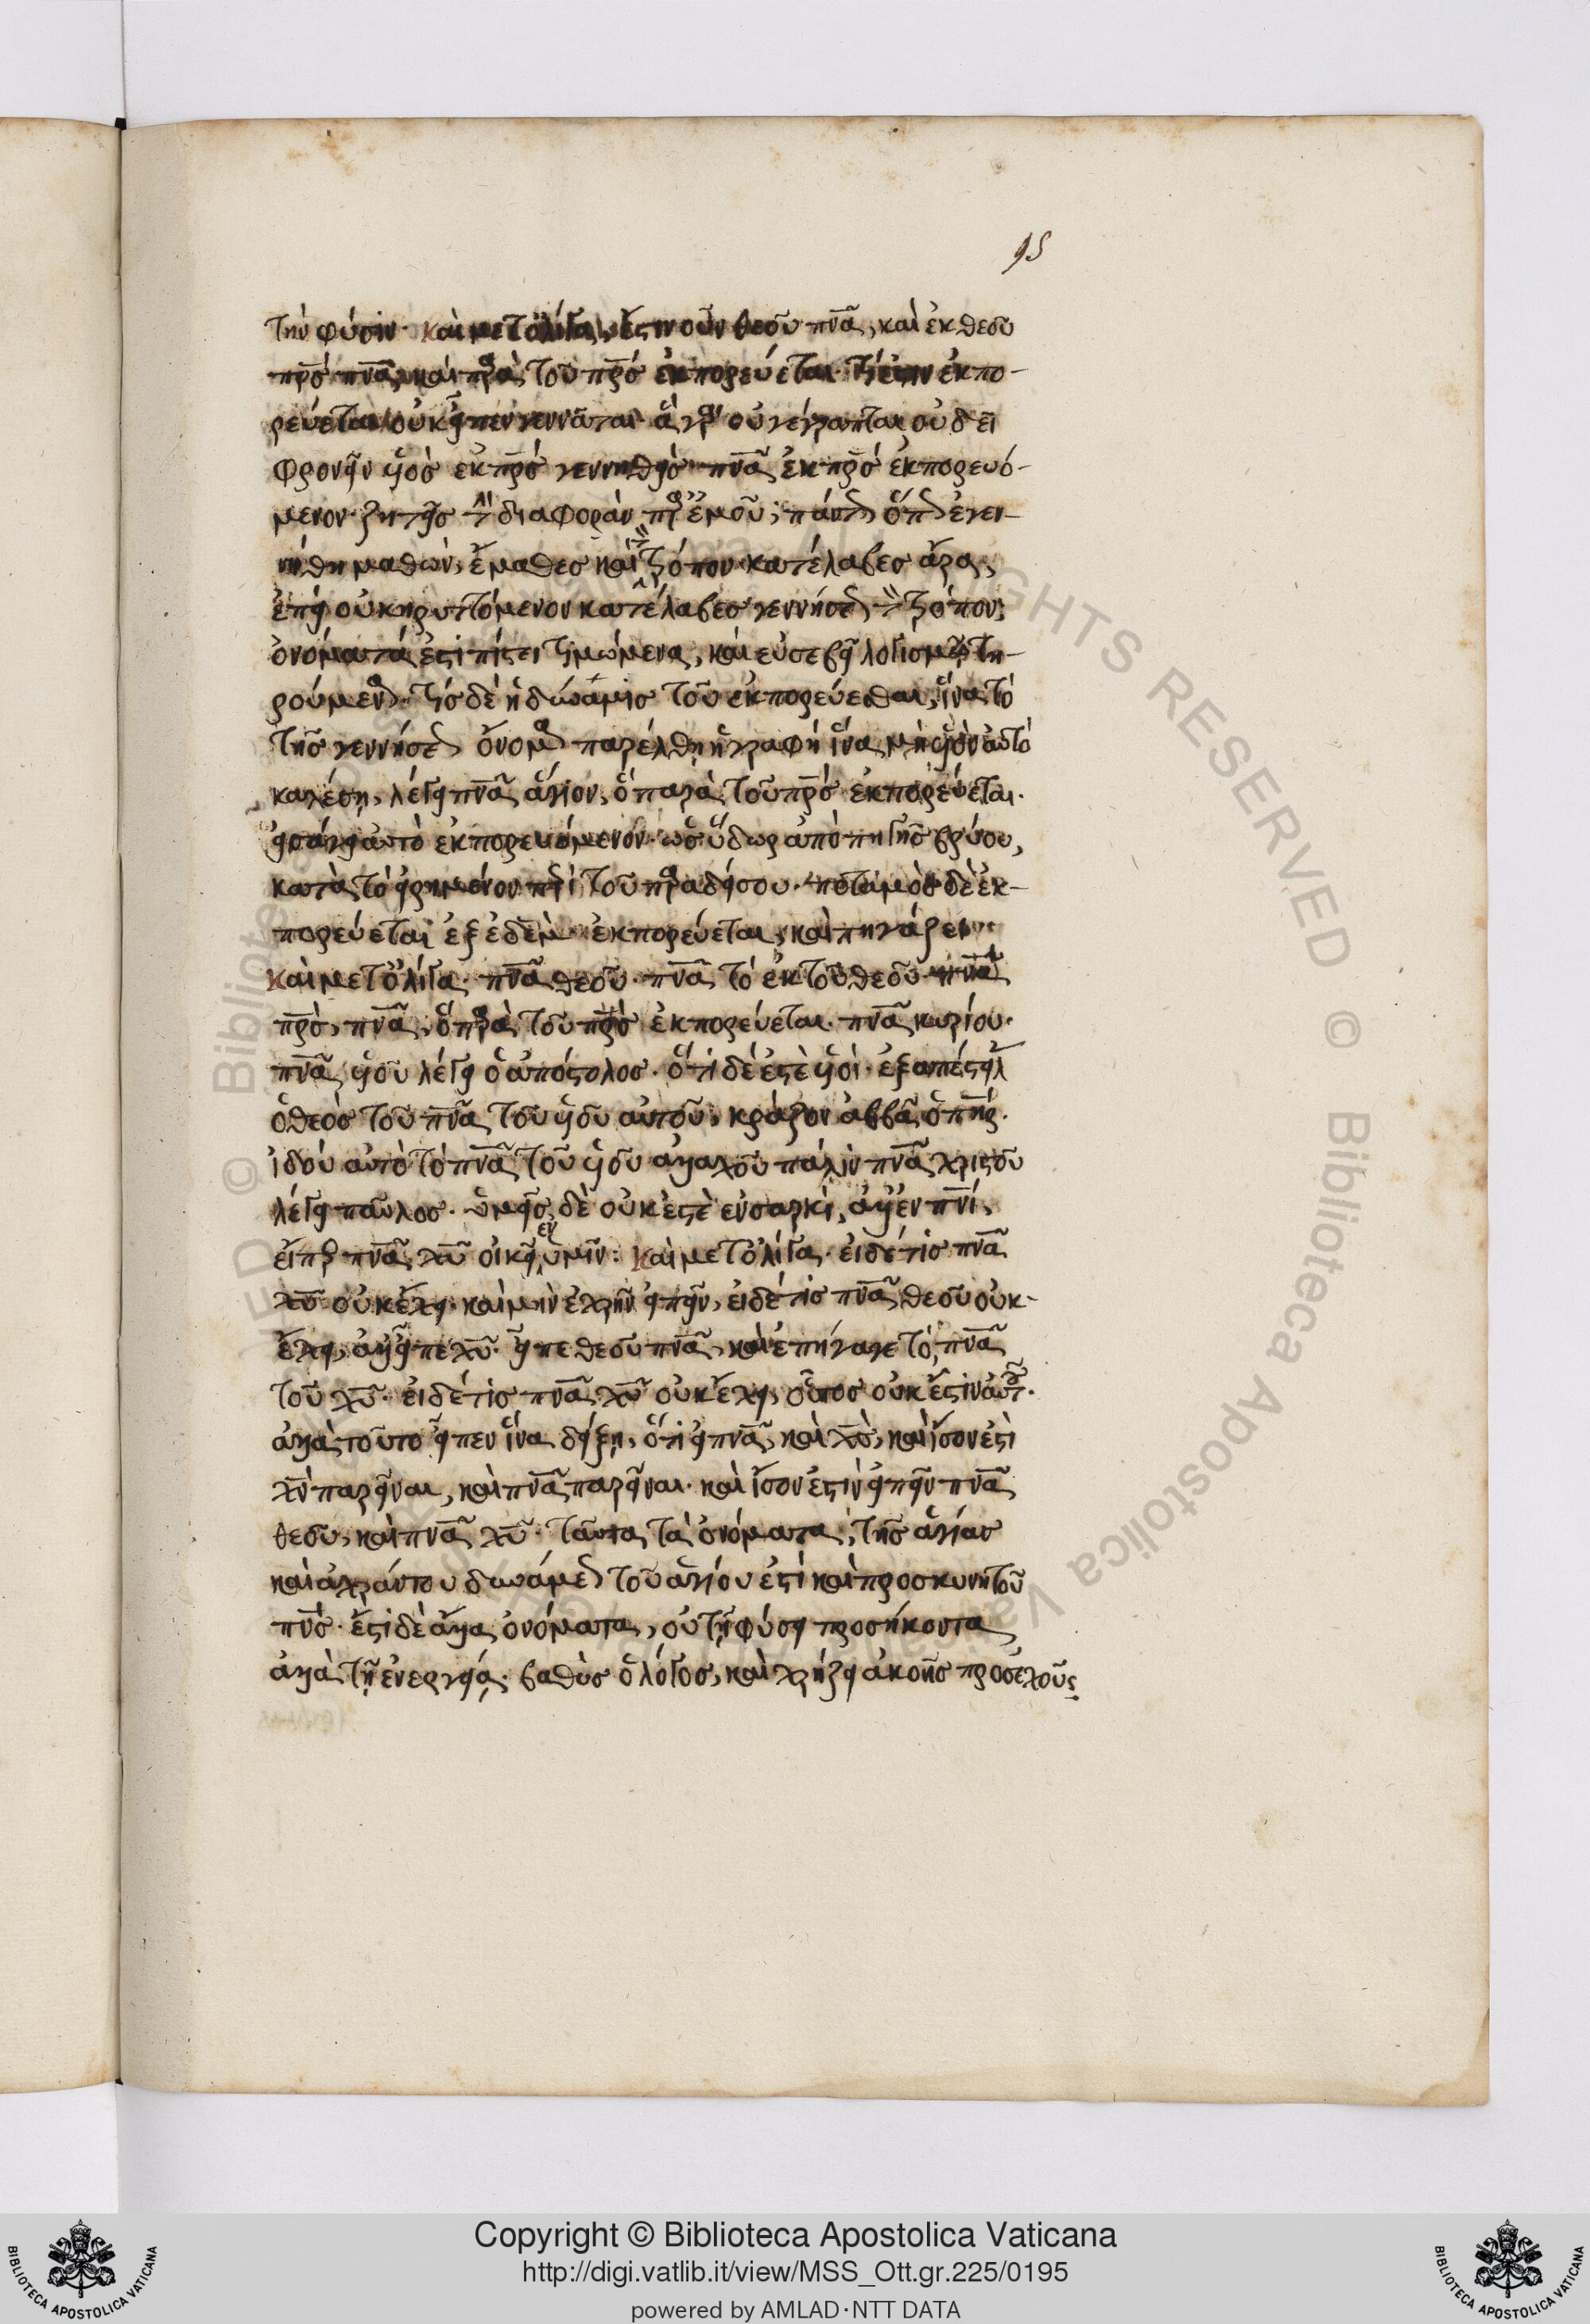 95
τὴν φύσιν· καὶ μετ' ὀλίγα, ἔστιν οὖν θεοῦ πνᾶ, καὶ ἐκ θεοῦ
πρσ πνᾶ, καὶ παρὰ τοῦ πρσ ἐκπορεύεται· τί ἐστιν ἐκπο-
ρεύεται οὐκ εἶπεν γεννᾶται· ἃ γὰρ οὐ γέγραπται οὐ δεῖ
φρονεῖν υἱὸς ἐκ πρσ γεννηθεὶς πνᾶ ἐκ πρσ ἐκπορευό-
μενον· ζητεῖς τὴν διαφορὰν παρ' ἐμοῦ; πάντως ὅπως ἐγεν-
νήθη μαθὼν, ἔμαθες καὶ τὸν τρόπον κατέλαβες ἄρα,
ἐπεὶ οὐ κηρυττόμενον κατέλαβες γεννήσεως τὸν τρόπον;
ὀνόματά ἐστι πίστει τιμώμενα, καὶ εὐσεβεῖ λογισμῷ τη-
ρούμενα· τίς δὲ ἡ δύναμις τοῦ ἐκπορεύεσθαι, ἵνα τὸ
τῆς γεννήσεως ὄνομα παρέλθη ἡ γραφὴ ἵνα μὴ υἱὸν αὐτὸ
καλέση, λέγει πνᾶ ἅγιον, ὃ παρὰ τοῦ πρσ ἐκπορεύεται·
εἰσάγει αὐτὸ ἐκπορευόμενον· ὡς ὕδωρ ἀπὸ πηγῆς βρύον,
κατὰ τὸ εἰρημένον περὶ τοῦ παραδείσου· ποταμὸς δὲ ἐκ-
πορεύεται ἐξ ἐδέμ· ἐκπορεύεται, καὶ πηγάζει
καὶ μετ' ὀλίγα· πνᾶ θεοῦ· πνᾶ τὸ ἐκ τοῦ θεοῦ· πνᾶ
πρσ, πνᾶ, ὃ παρὰ τοῦ πρσ ἐκπορεύεται· πνᾶ κυρίου·
πνᾶ υἱοῦ λέγει ὁ ἀπόστολος· ὅτι δέ ἐστε υἱοὶ· ἐξαπέστειλ
ὁ θεὸς τοῦ πνᾶ τοῦ υἱοῦ αὐτοῦ, κράζον ἀββᾶ ὁ πηρ·
ἰδοὺ αὐτὸ τὸ πνᾶ τοῦ υἱοῦ ἀλλαχοῦ πάλιν πνᾶ χριστοῦ
λέγει παῦλος· ὑμεῖς δὲ οὐκ ἐστὲ ἐν σαρκὶ, ἀλλ' ἐν πνι,
εἴπερ πνᾶ χῦ οἰκεῖ ἐν ὑμῖν: καὶ μετ' ὀλίγα· εἰ δέ τις πνᾶ
χῦ οὐκ ἔχει· καὶ μὴν ἐχρῆν εἰπεῖν, εἰ δέ τις πνᾶ θεοῦ οὐκ
ἔχει, ἀλλ' εἶπε χῦ· εἶπε θεοῦ πνᾶ, καὶ ἐπήγαγε τὸ, πνᾶ
τοῦ χῦ· εἰ δέ τις πνᾶ χῦ οὐκ ἔχει, οὗτος οὐκ ἔστιν αὐτοῦ·
ἀλλὰ τοῦτο εἶπεν ἵνα δείξη, ὅτι ἓν πνᾶ, καὶ χσ, καὶ ἴσον ἐστὶ
χν παρεῖναι, καὶ πνᾶ παρεῖναι· καὶ ἴσον ἐστὶν εἰπεῖν πνᾶ
θεοῦ, καὶ πνᾶ χῦ· ταῦτα τὰ ὀνόματα, τῆς ἁγίας
καὶ ἀχράντου δυνάμεως τοῦ ἁγίου ἐστὶ καὶ προσκυνητοῦ
πνσ· ἔστι δὲ ἄλλα ὀνόματα, οὐ τῆ φύσει προσήκοντα
ἀλλὰ τῆ ἐνεργείᾳ· βαθὺς ὁ λόγος, καὶ χρήζει ἀκοῆς προσεχοῦς
Copyright © Biblioteca Apostolica Vaticana
http://digi.vatlib.it/view/MSS_Ott.gr.225/0195
powered by AMLAD·NTT DATA